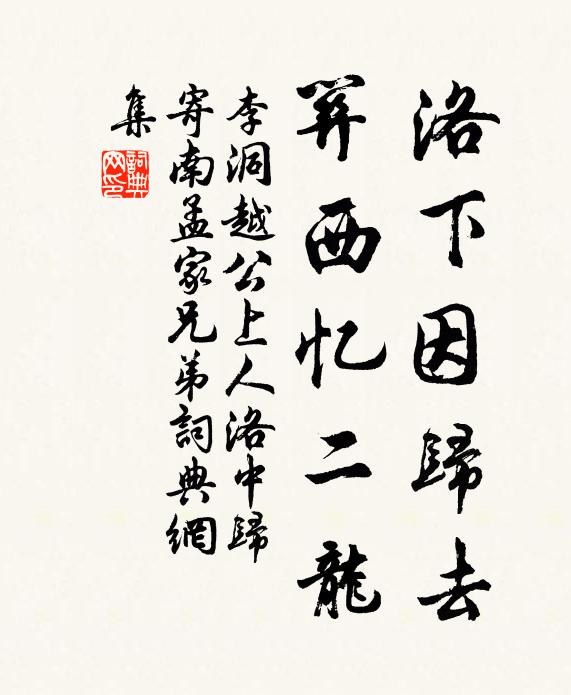 洛下因歸去
关西忆二龍
李洞越公上人洛中歸
寄南孟家兄弟詞典網
集
詞典
网印